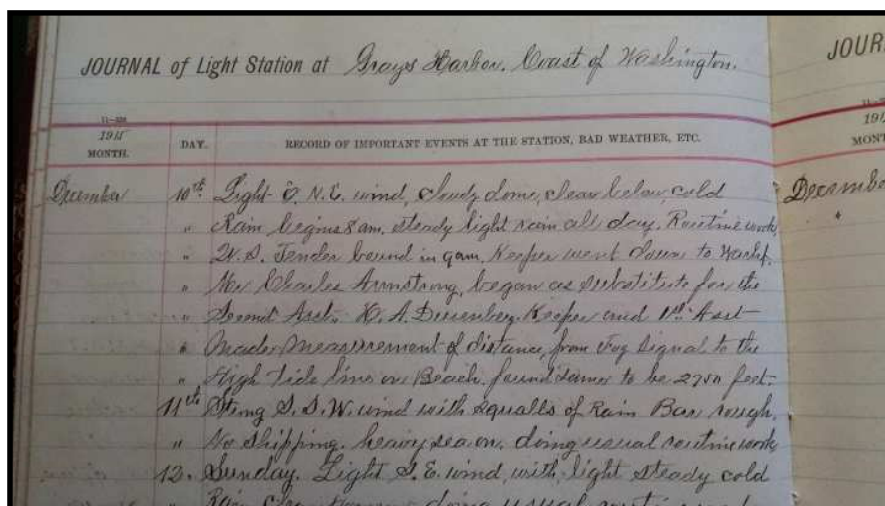 JOURNAL of Light Station at Grays Harbor. Coast of Washington.
JOUR
1915
MONTH.
DAY.
RECORD OF IMPORTANT EVENTS AT THE STATION, BAD WEATHER, ETC.
191
MONT
December 10th. Light E. N.E. wind, cloudy dome, clear below, cold
Decembe
" Rain begins 8 am. steady light rain all day. Routine work,
" Tender bound in 9am. Keeper went down to
" Mr Charles Armstrong, began as substitute for the
" Second Asst. Keeper and 1st. Asst
" Made Measurement of distance, from Fog Signal to the
" High tide line on Beach. found same to be 2750 feet.
11th Stong S.S.W. wind with squalls of Rain Bar rough.
" No Shipping. heavy sea on. doing usual routine work
12. Sunday. Light S.E. wind, with light steady cold
Rain doing usual